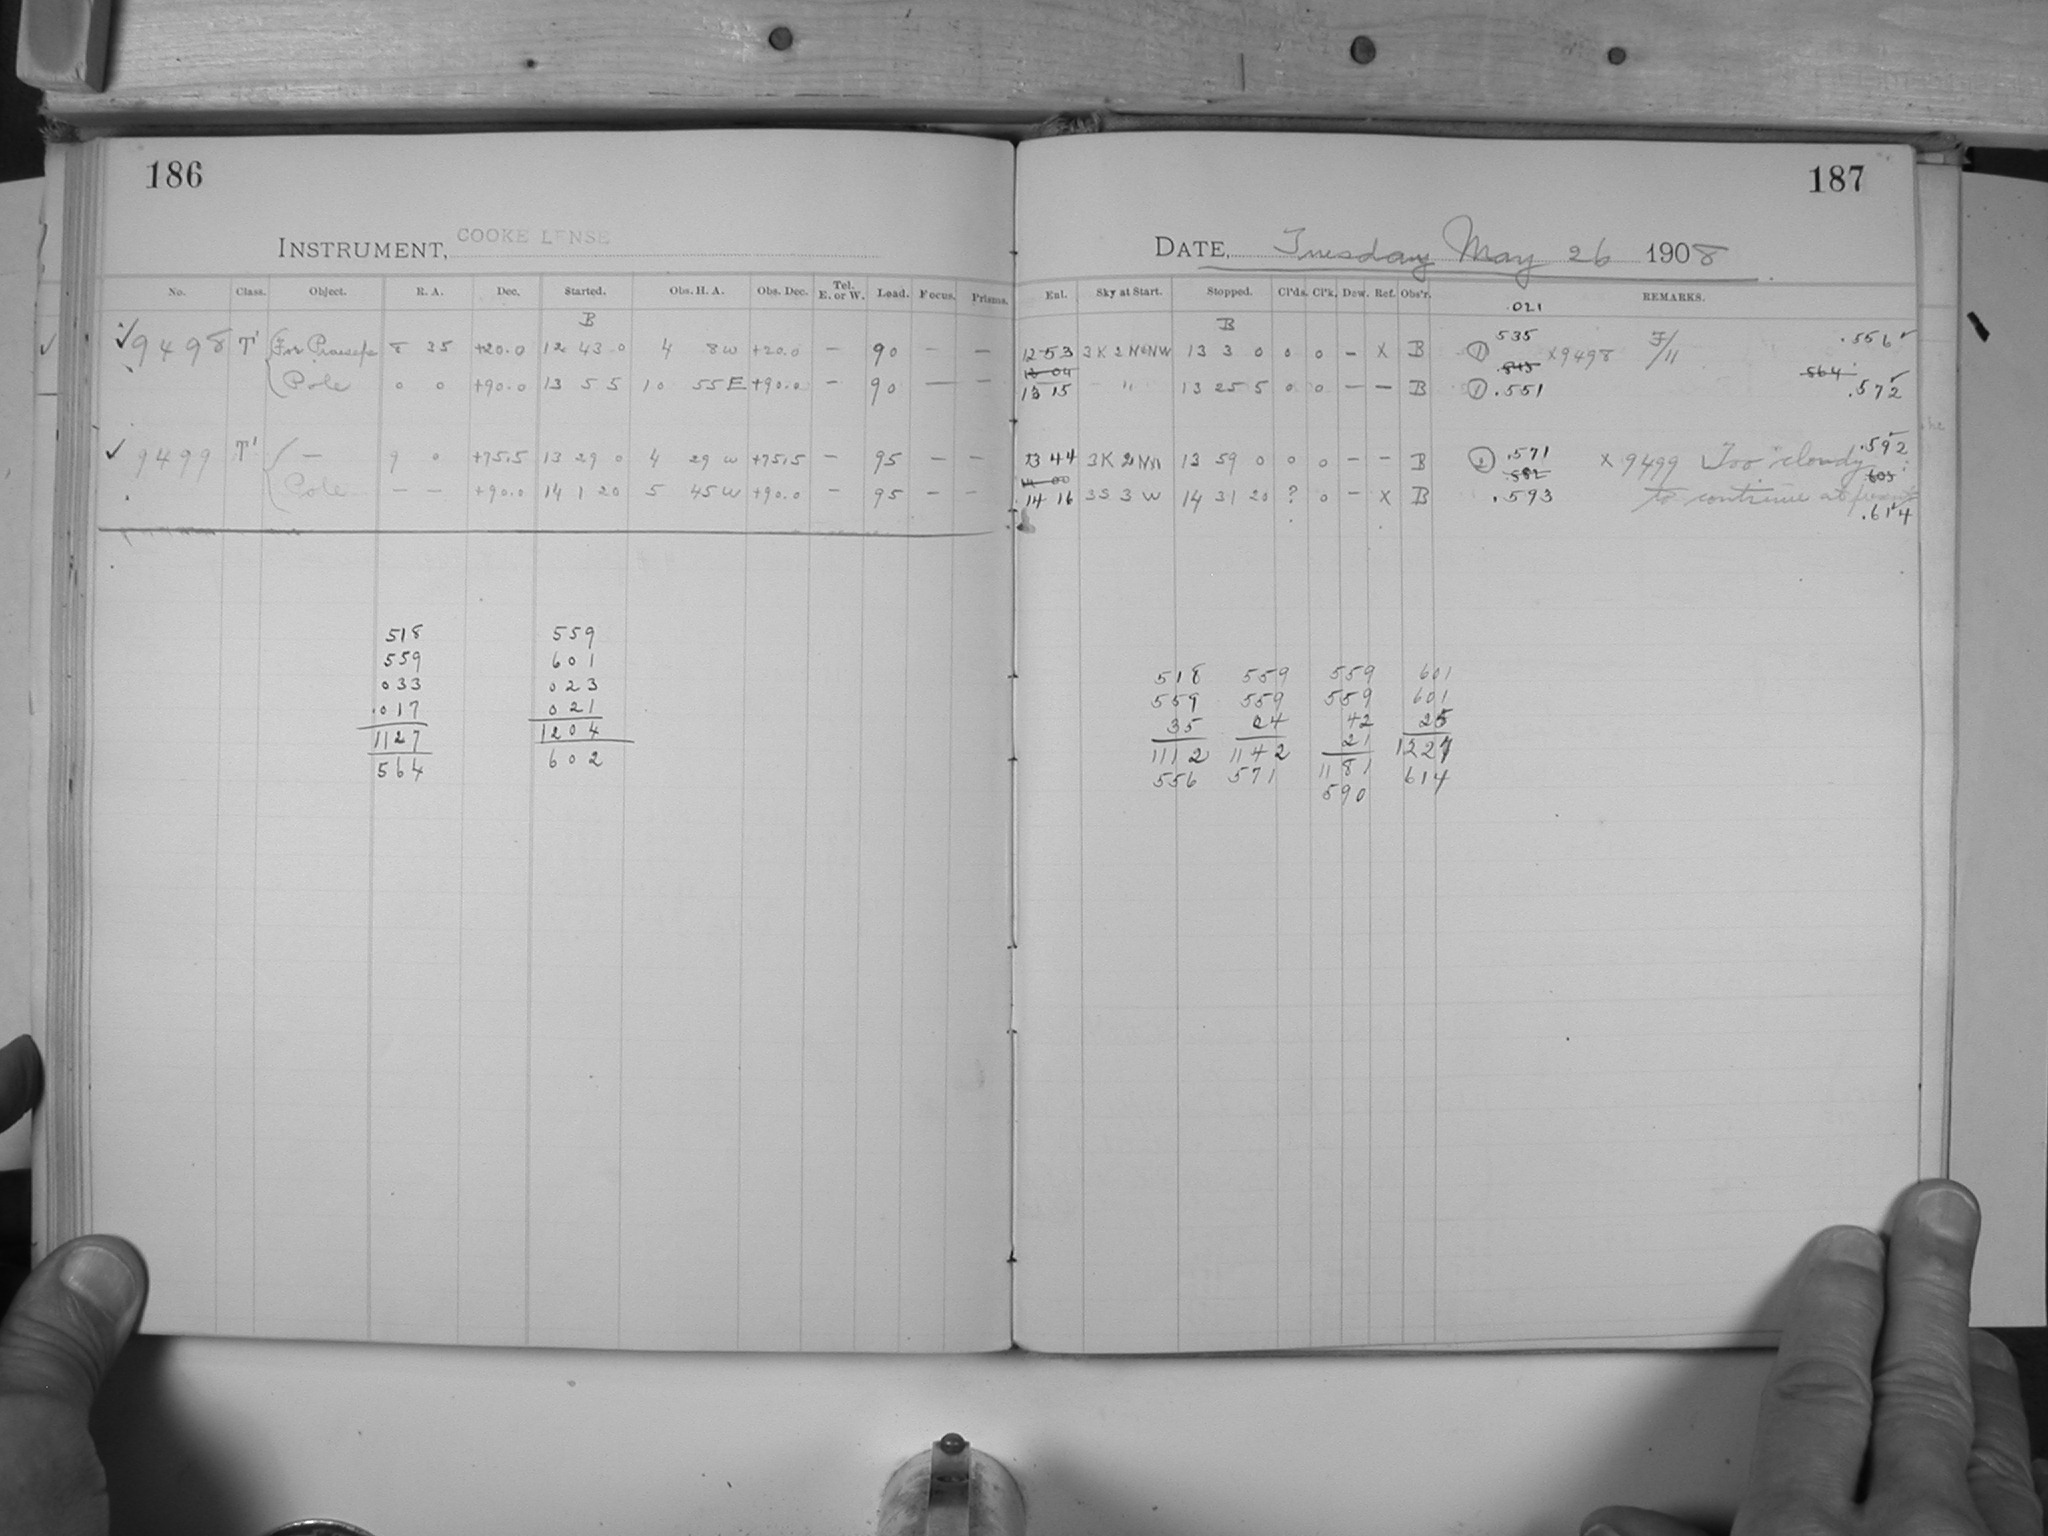 186
INSTRUMENT, COOKE LENSE
No. Class. Object. R. A. Dec. Started. Obs. H. A. Obs. Dec. Tel. E. or W. Load. Focus. Prisms.
B
✓9498 T' For Praesepe 8 35 +20.0 12 43 0 4 8W +20.0 — 90 — —
Pole 0 0 +90.0 13 5 5 10 55E +90.0 — 90 — —
✓ 9499 T' — 9 0 +75.5 13 29 0 4 29 W +75.5 — 95 — —
Pole — — +90.0 14 1 20 5 45W +90.0 — 95 — —
518 559
559 601
033 023
.017 021
1127 1204
564 602
187
DATE, Tuesday May 26 1908
Exl. Sky at Start. Stopped. Cl'ds. Cl'k. Dew. Ref. Obs'r. REMARKS.
.021
B
12 53 3K 2 N&NW 13 3 0 0 0 — X B ① 535 X 9498 F/11 .556✓
13 04 .543 564
13 15 " 13 25 5 0 0 — — B ① .551 .572
13 44 13 59 0 0 0 — — B ② .571 X 9499 Too cloudy .592
14 00 .582 603
14 16 3S 3 W 14 31 20 ? 0 — X B .593 to continue at present
.614
518 559 559 601
559 559 559 601
35 24 42 25
1112 1142 21 1227
556 571 1181 614
590